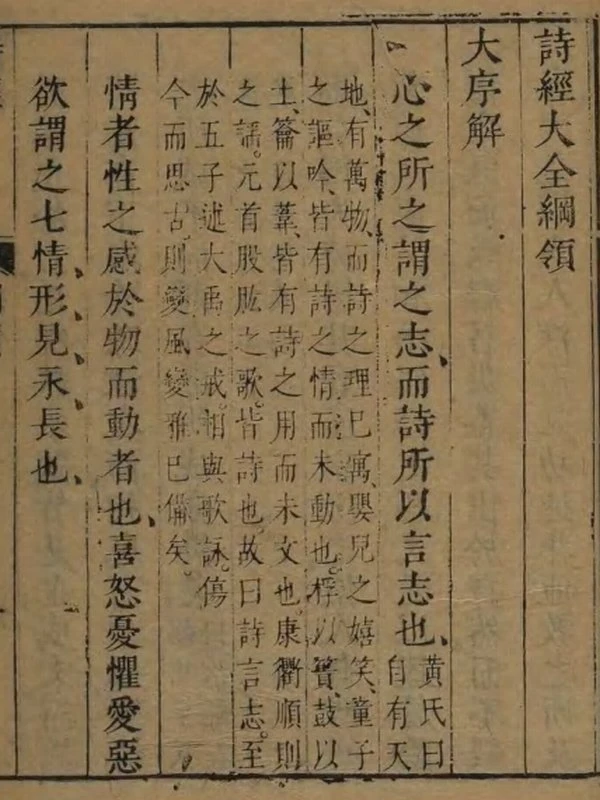 詩經大全綱領
大序解
心之所之謂之志、而詩所以言志也、
黃氏曰
自有天
地、有萬物、而詩之理已寓、嬰兒之嬉笑、童子
之謳吟、皆有詩之情而未動也。桴以蕢、鼓以
土、籥以葦、皆有詩之用而未文也。康衢順則
之謠。元首股肱之歌。皆詩也。故曰詩言志。至
於五子述大禹之戒。相與歌詠。傷
今而思古。則變風變雅已備矣。
情者性之感於物而動者也、喜怒憂懼愛惡
欲謂之七情、形見、永長也、